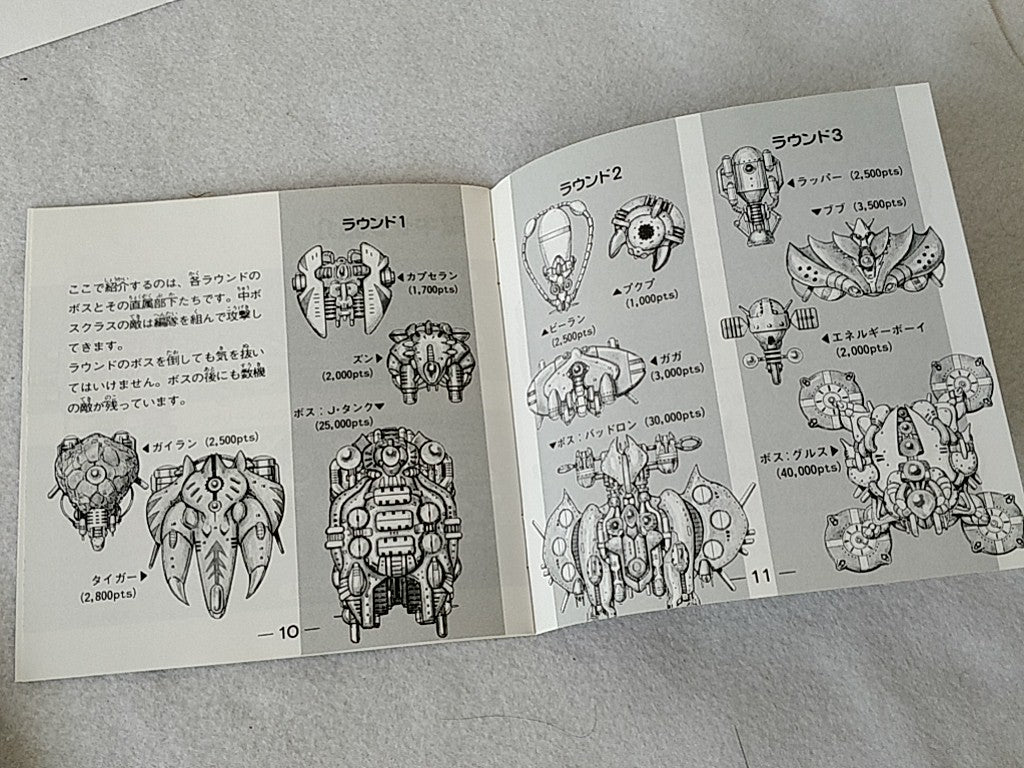 ここで紹介するのは、各ラウンドの
ボスとその直属部下たちです。中ボ
スクラスの敵は編隊を組んで攻撃し
てきます。
ラウンドのボスを倒しても気を抜い
てはいけません。ボスの後にも数機
の敵が残っています。
◀ガイラン (2,500pts)
タイガー▶
(2,800pts)
— 10 —
ラウンド1
◀カブセラン
(1,700pts)
ズン▶
(2,000pts)
ボス：J・タンク▼
(25,000pts)
ラウンド2
▲ブクブ
(1,000pts)
▲ビーラン
(2,500pts)
◀ガガ
(3,000pts)
▼ボス：バッドロン (30,000pts)
ラウンド3
◀ラッパー (2,500pts)
▼ブブ (3,500pts)
◀エネルギーボーイ
(2,000pts)
ボス：グルス▶
(40,000pts)
— 11 —